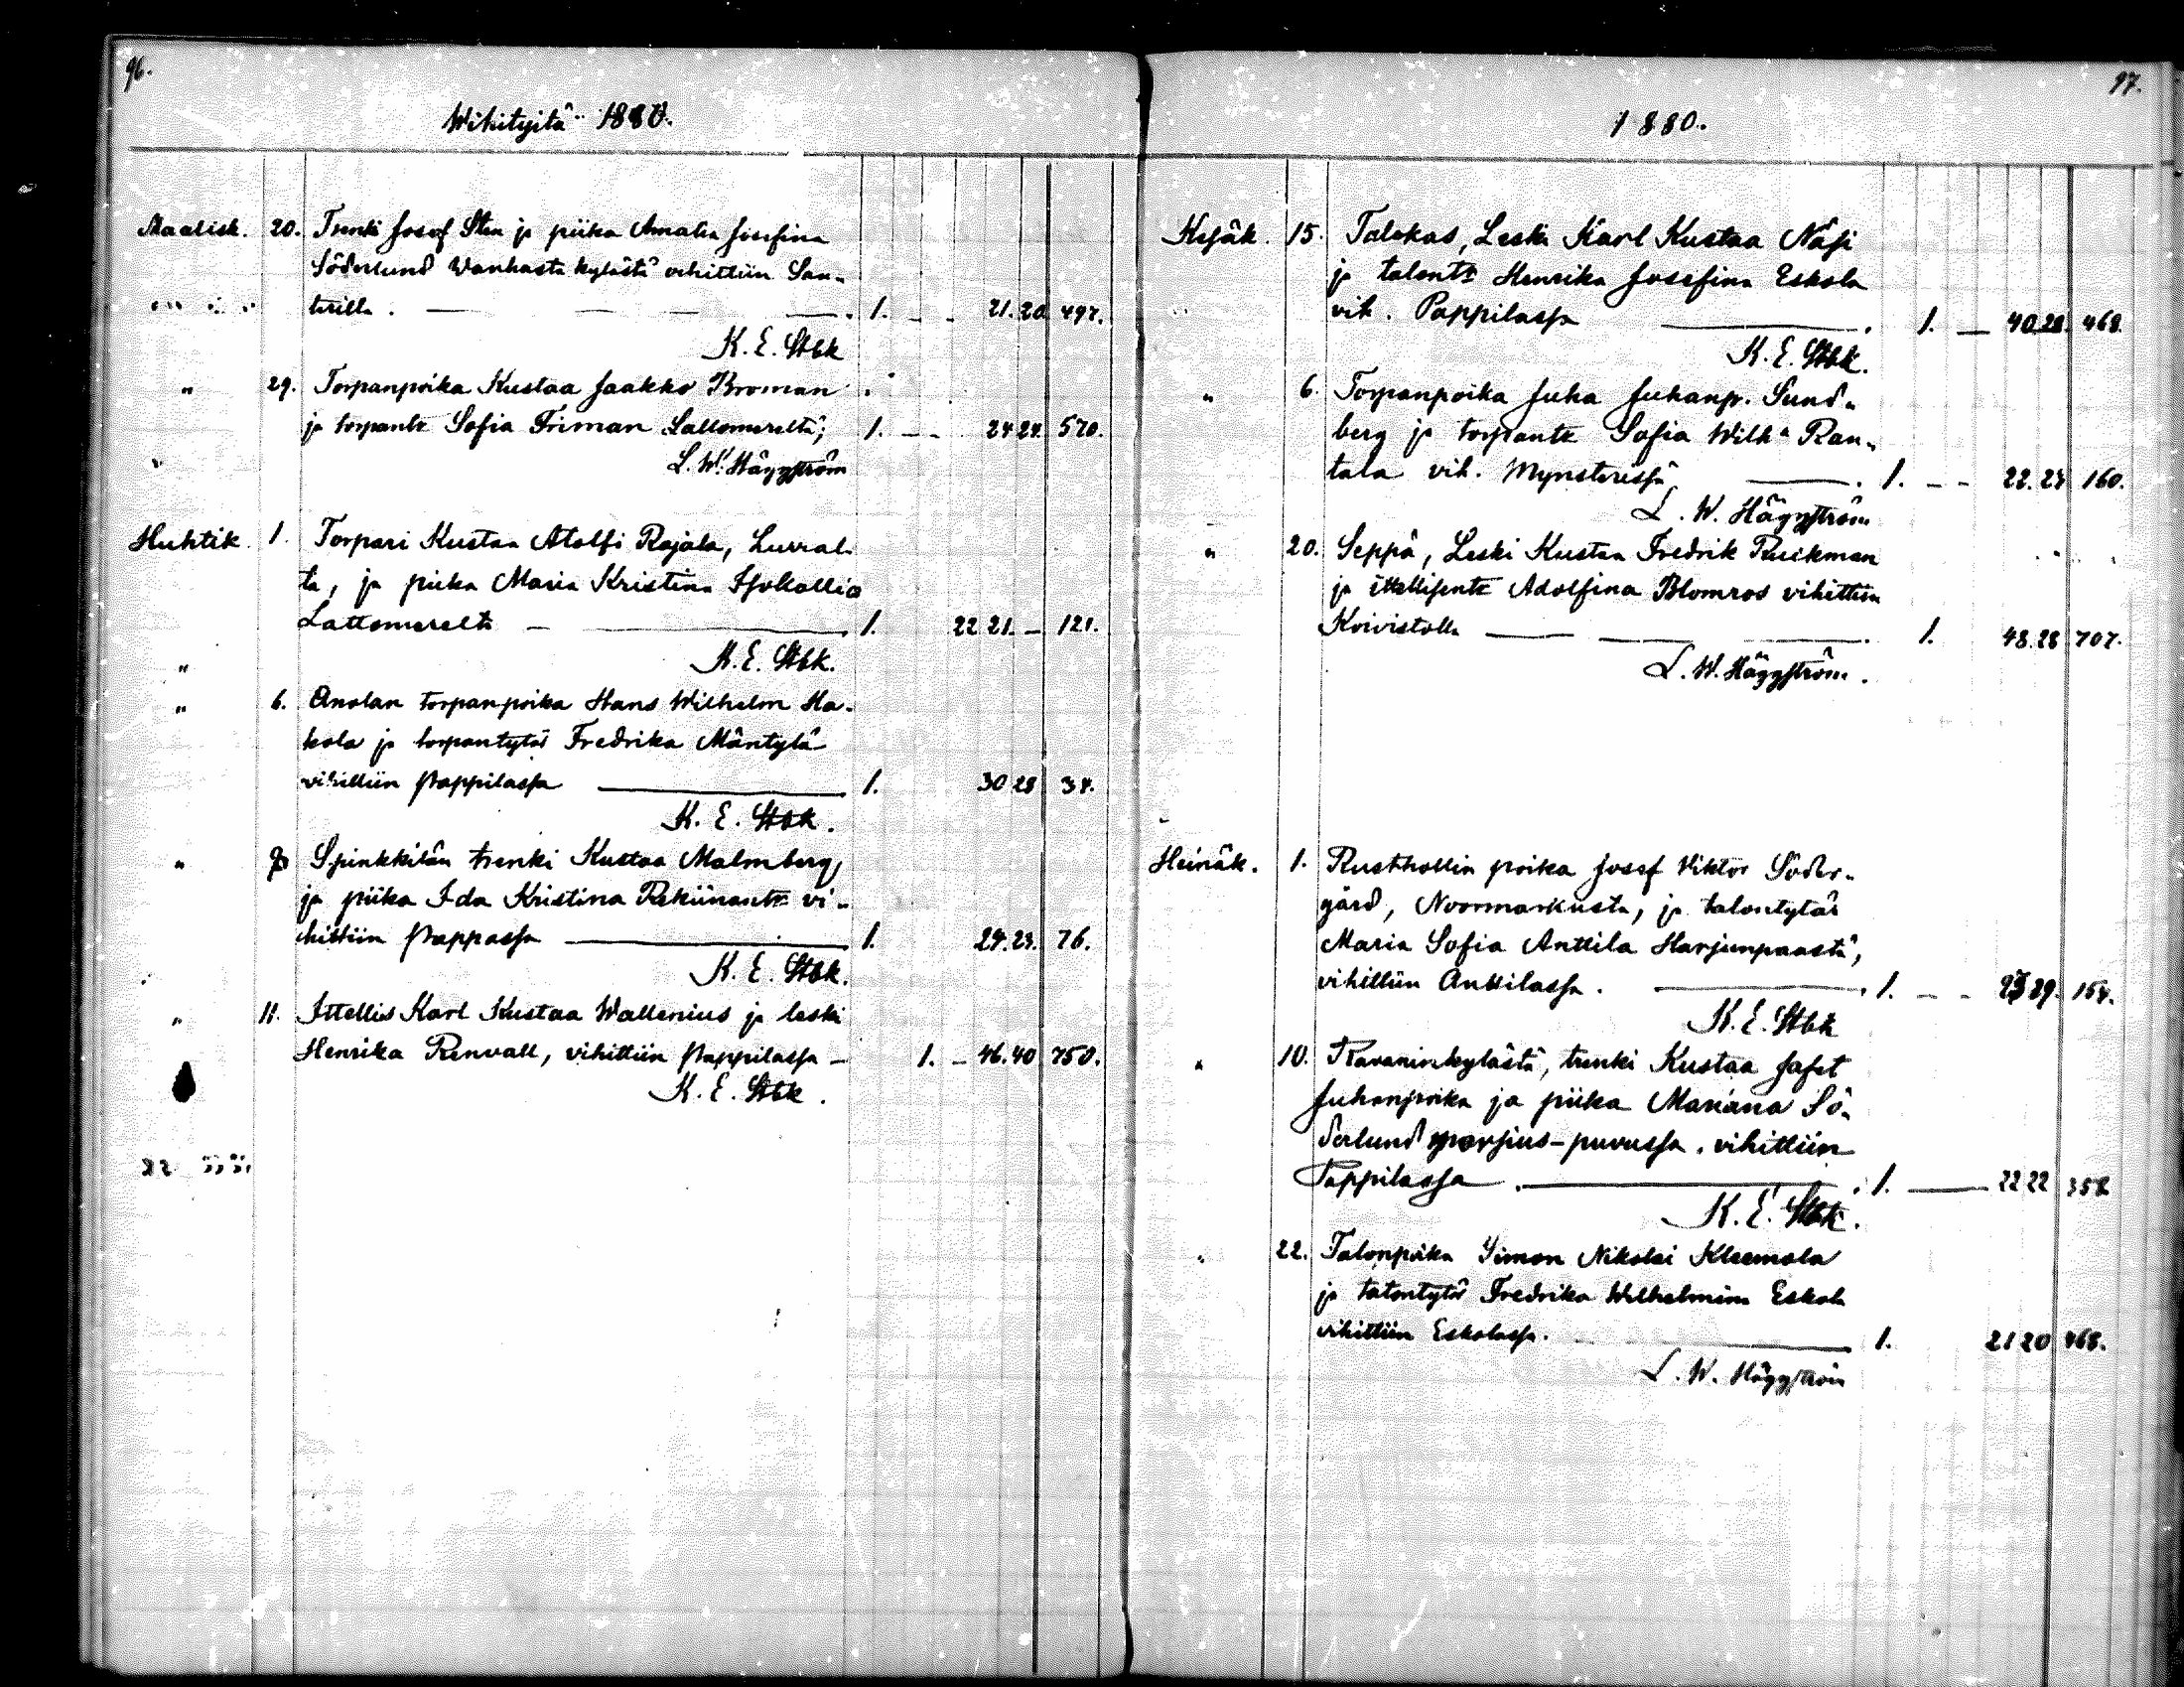 96.
Wihityitä 1880.
Maalisk. 20. Trenki Josef Sten ja piika Amalia Josefina
Söderlund Wanhasta kylästä vihittiin San-
terilla. 1. 21. 20 497.
K. E. Stbk
" 29. Torpanpoika Kustaa Jaakko Broman
ja torpantr Sofia Friman Lattomerelta; 1. 24 24. 570.
L. W. Häggström
Huhtik. 1. Torpari Kustaa Atolfi Rajala,
ta, ja piika Maria Kristina Isokallio
Lattomerelta 1. 22 21. 121.
K. E. Stbk.
" 6. Anolan torpanpoika Hans Wilhelm Ha-
kola ja torpantytär Fredrika Mäntylä
vihittiin Pappilassa 1. 30 28 34.
K. E. Stbk.
" Spinkkilän trenki Kustaa Malmberg,
ja piika Ida Kristina vi-
hittiin Pappassa 1. 24. 23. 76.
K. E. Stbk.
" 11. Ittellis Karl Kustaa Wallenius ja leski
Henrika Renvall, vihittiin Pappilassa 1. 46. 40 750.
K. E. Stbk.
97.
1880.
Kesäk. 15. Talokas, Leski Karl Kustaa Näsi
ja talontr Henrika Josefina Eskola
vih. Pappilassa 1. 40 28. 468.
K. E. Stbk.
" 6. Torpanpoika Juha Juhanp. Sund-
berg ja torpantr Sofia Wilha Ran-
tala vih. Mynsterissä 1. 22. 24 160.
L. W. Häggström
" 20. Seppä, Leski Kustaa Fredrik Ruikman
ja ittellisentr Adolfina Blomros vihittiin
Koivistolla 1. 48. 28 707.
L. W. Häggström.
Heinäk. 1. Rusthollin poika Josef Viktor Söder-
gård, Noormarkusta, ja talontytär
Maria Sofia Anttila Harjunpaastä,
vihittiin Anttilassa. 1. 29. 154.
K. E. Stbk
" 10. Ravaninkylästä, trenki Kustaa Jafet
Juhanpoika ja piika Mariana Sö-
derlund morsius-puvussa. vihittiin
Pappilassa 1. 22 22 358
K. E. Stbk.
" 22. Talonpoika Simon Nikolai Kleemola
ja talontytär Fredrika Wilhelmina Eskola
vihittiin Eskolassa. 1. 21 20 468.
L. W. Häggström